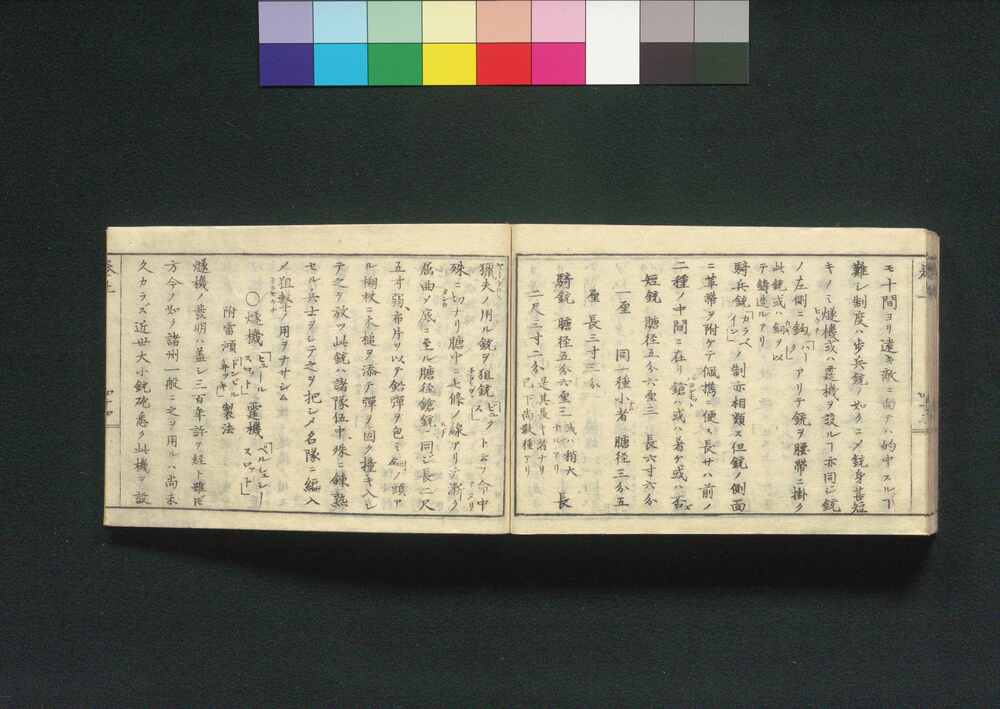 モ十間ヨリ遠キ敵ニ向テハ的中スルヿ
難シ制度ハ歩兵銃ノ如クニメ銃身甚短
キノミ燧機或ハ靂機ヲ設ルヿ亦同シ銃
ノ左側ニ鈎「ハーク」アリテ銃ヲ腰帶ニ掛ク
此銃或ハ銅ヲ以テ鋳造ルアリ
騎兵銃「カラベイン」ノ制亦相類ス但銃ノ側面
ニ革帶ヲ附ケテ佩携ニ便ス長サハ前ノ
二種ノ中間ニ在リ鎗ハ或ハ着ケ或ハ否
短銃 膅径五分六厘三 長六寸六分
一厘 同一種小者 膅径三分五
厘 長三寸三分
騎銃 膅径五分六厘三 或ハ稍大 長
二尺三寸二分 是其長キ者ナリ已下尚数種アリ
猟夫ノ用ル銃ヲ狙銃 ト云フ命中
殊ニ切ナリ膅中ニ七條ノ線アリテ漸ク
屈曲ノ底ニ至ル膅径鎗銃ニ同シ長二尺
五寸弱、布片ヲ以テ鉛弾ヲ包ミ 頭ア
ル槊杖ニ木槌ヲ添テ弾ノ固ク撞キ入レ
テ之ヲ放ツ此銃ハ諸隊伍中、殊ニ錬熟
セル兵士ヲシテ之ヲ把シメ名隊ニ編入
メ狙撃ノ用ヲナサシム
〇燧機「ヒュールスロット」靂機「ペルキュシースロット」
附雷澒 製法
燧機ノ發明ハ蓋シ三百年許ヲ経ト雖𪜈
方今ノ如ク諸州一般ニ之ヲ用ルハ尚未
久カラズ近世大小銃砲悉ク此機ヲ設